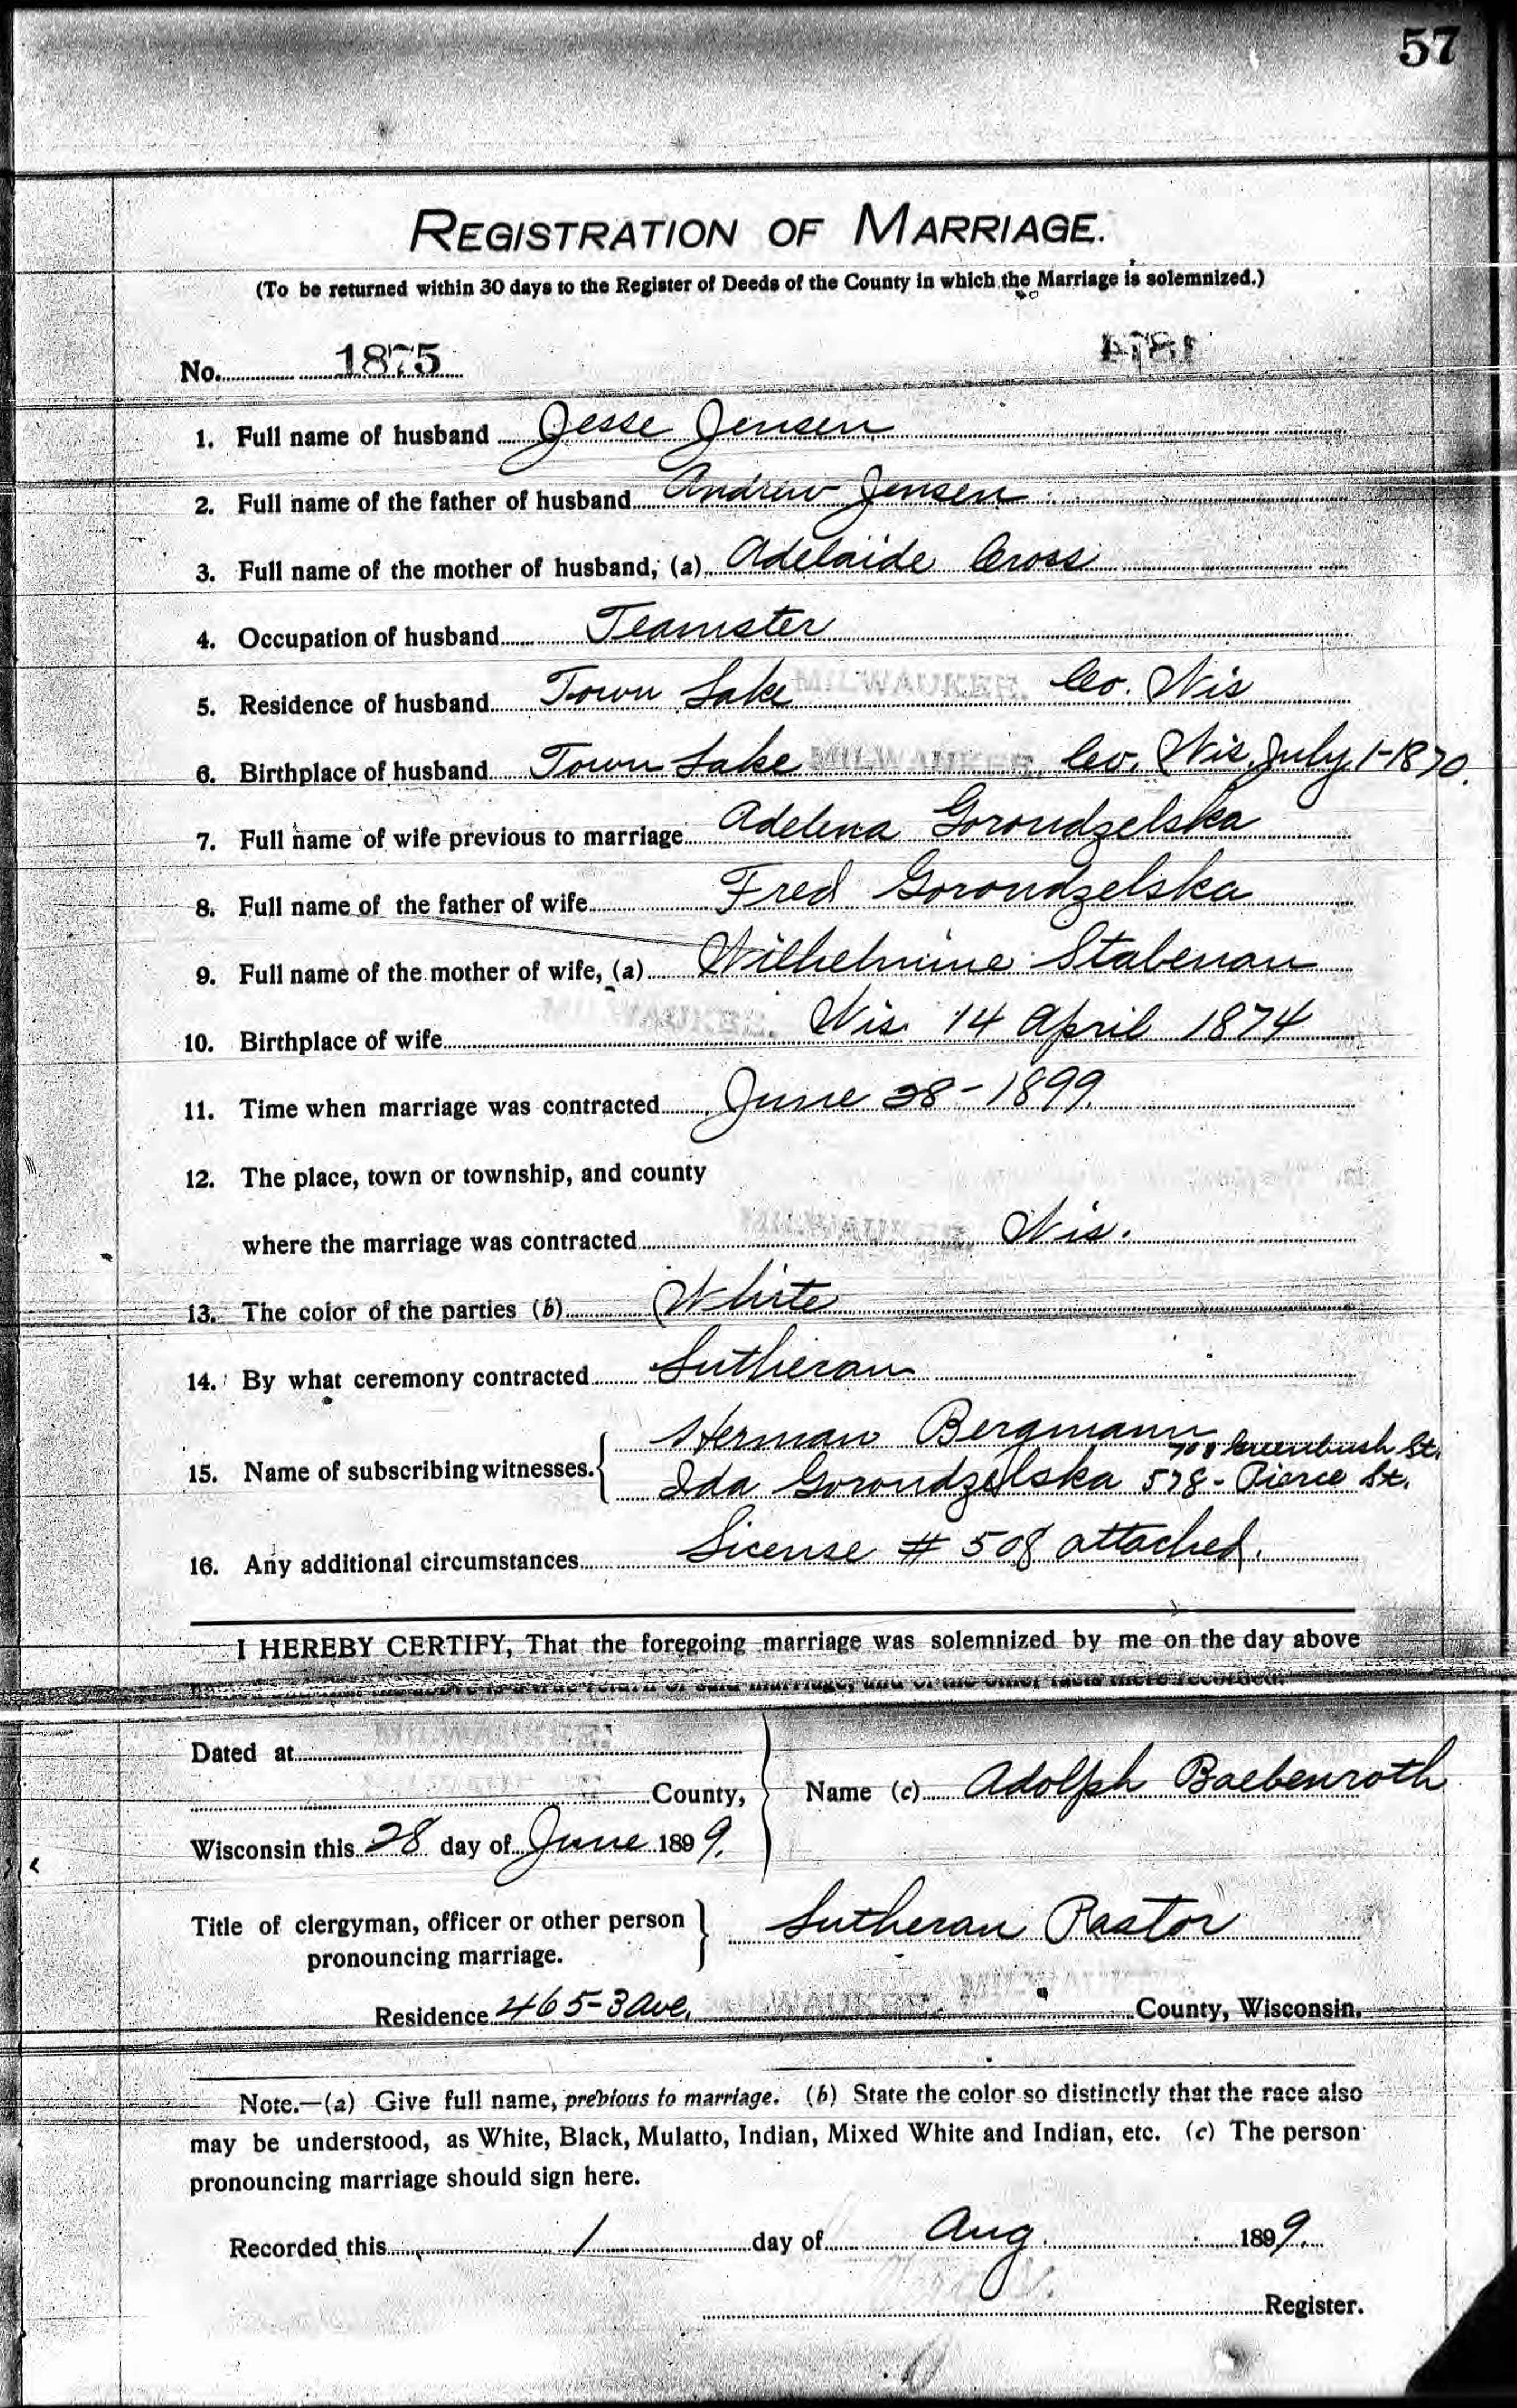 57
REGISTRATION OF MARRIAGE.
(To be returned within 30 days to the Register of Deeds of the County in which the Marriage is solemnized.)
No. 1875
1. Full name of husband Jesse Jensen
2. Full name of the father of husband Andrew Jensen
3. Full name of the mother of husband, (a) Adelaide Cross
4. Occupation of husband Teamster
5. Residence of husband Town Lake MILWAUKEE, Co. Wis
6. Birthplace of husband Town Lake MILWAUKEE, Co. Wis. July 1-1870.
7. Full name of wife previous to marriage Adelina Gorondzelska
8. Full name of the father of wife Fred Gorondzelska
9. Full name of the mother of wife, (a) Wilhelmine Stabenau
10. Birthplace of wife MILWAUKEE, Wis. 14 April 1874
11. Time when marriage was contracted June 28-1899.
12. The place, town or township, and county
where the marriage was contracted MILWAUKEE, Wis.
13. The color of the parties (b) White
14. By what ceremony contracted Lutheran
Herman Bergmann 708 Greenbush St.
15. Name of subscribing witnesses. Ida Gorondzelska 578-Pierce St.
16. Any additional circumstances License # 508 attached.
I HEREBY CERTIFY, That the foregoing marriage was solemnized by me on the day above
return of said marriage, and of the other facts there recorded.
Dated at MILWAUKEE.
County, Name (c) Adolph Baebenroth
Wisconsin this 28 day of June 1899.
Title of clergyman, officer or other person
pronouncing marriage. Lutheran Pastor
Residence 465-3 Ave, MILWAUKEE, County, Wisconsin.
Note.—(a) Give full name, previous to marriage. (b) State the color so distinctly that the race also
may be understood, as White, Black, Mulatto, Indian, Mixed White and Indian, etc. (c) The person
pronouncing marriage should sign here.
Recorded this 1 day of Aug. 1899.
Register.